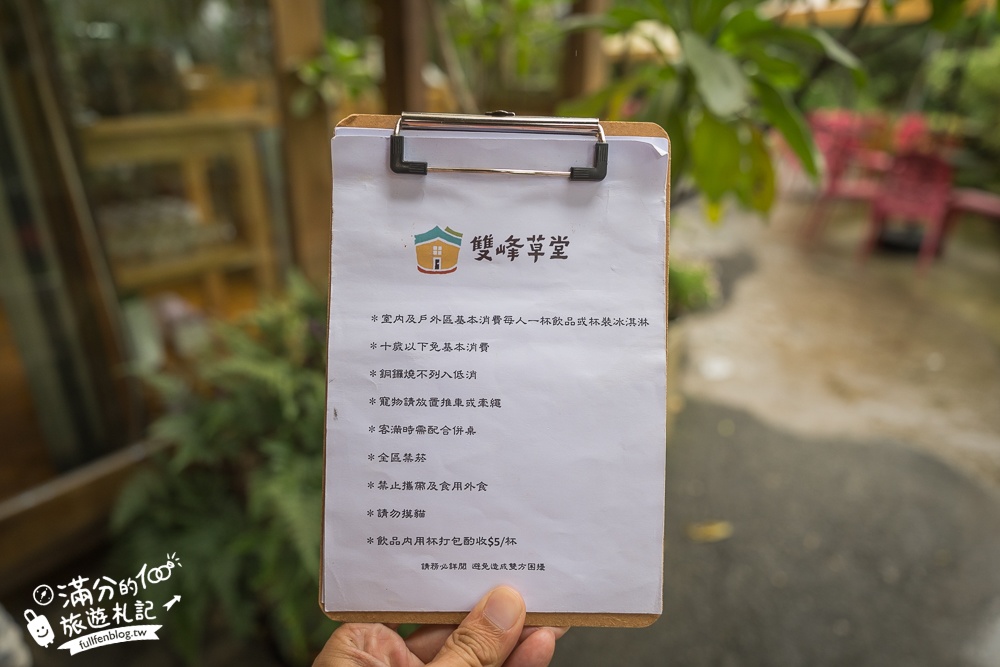 雙峰草堂
＊室內及戶外區基本消費每人一杯飲品或杯裝冰淇淋
＊十歲以下免基本消費
＊銅鑼燒不列入低消
＊寵物請放置推車或牽繩
＊客滿時需配合併桌
＊全區禁菸
＊禁止攜帶及食用外食
＊請勿摸貓
＊飲品內用杯打包酌收$5/杯
請務必詳閱 避免造成雙方困擾
滿分的100
旅遊札記
fullfenblog.tw